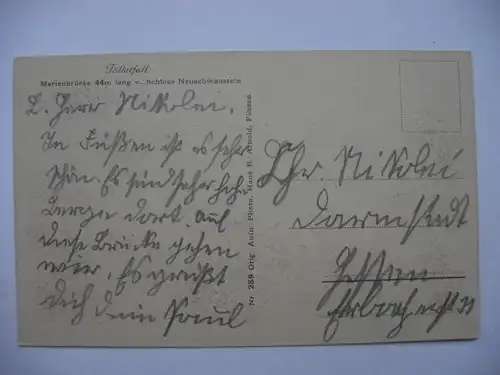 Pöllatfall
Marienbrücke 44m. lang v. Schloss Neuschwanstein
L. Herr Nikolei.
In Füßen ist es sehr
schön. Es sind sehr hohe
Berge dort. Auf
diese Brücke gehen
wir. Es grüßt
Dich dein Paul
Nr 286 Orig. Aufn. Photo. Haus B. Arnold, Füssen
Chr. Nikolei
Darmstadt
Hessen